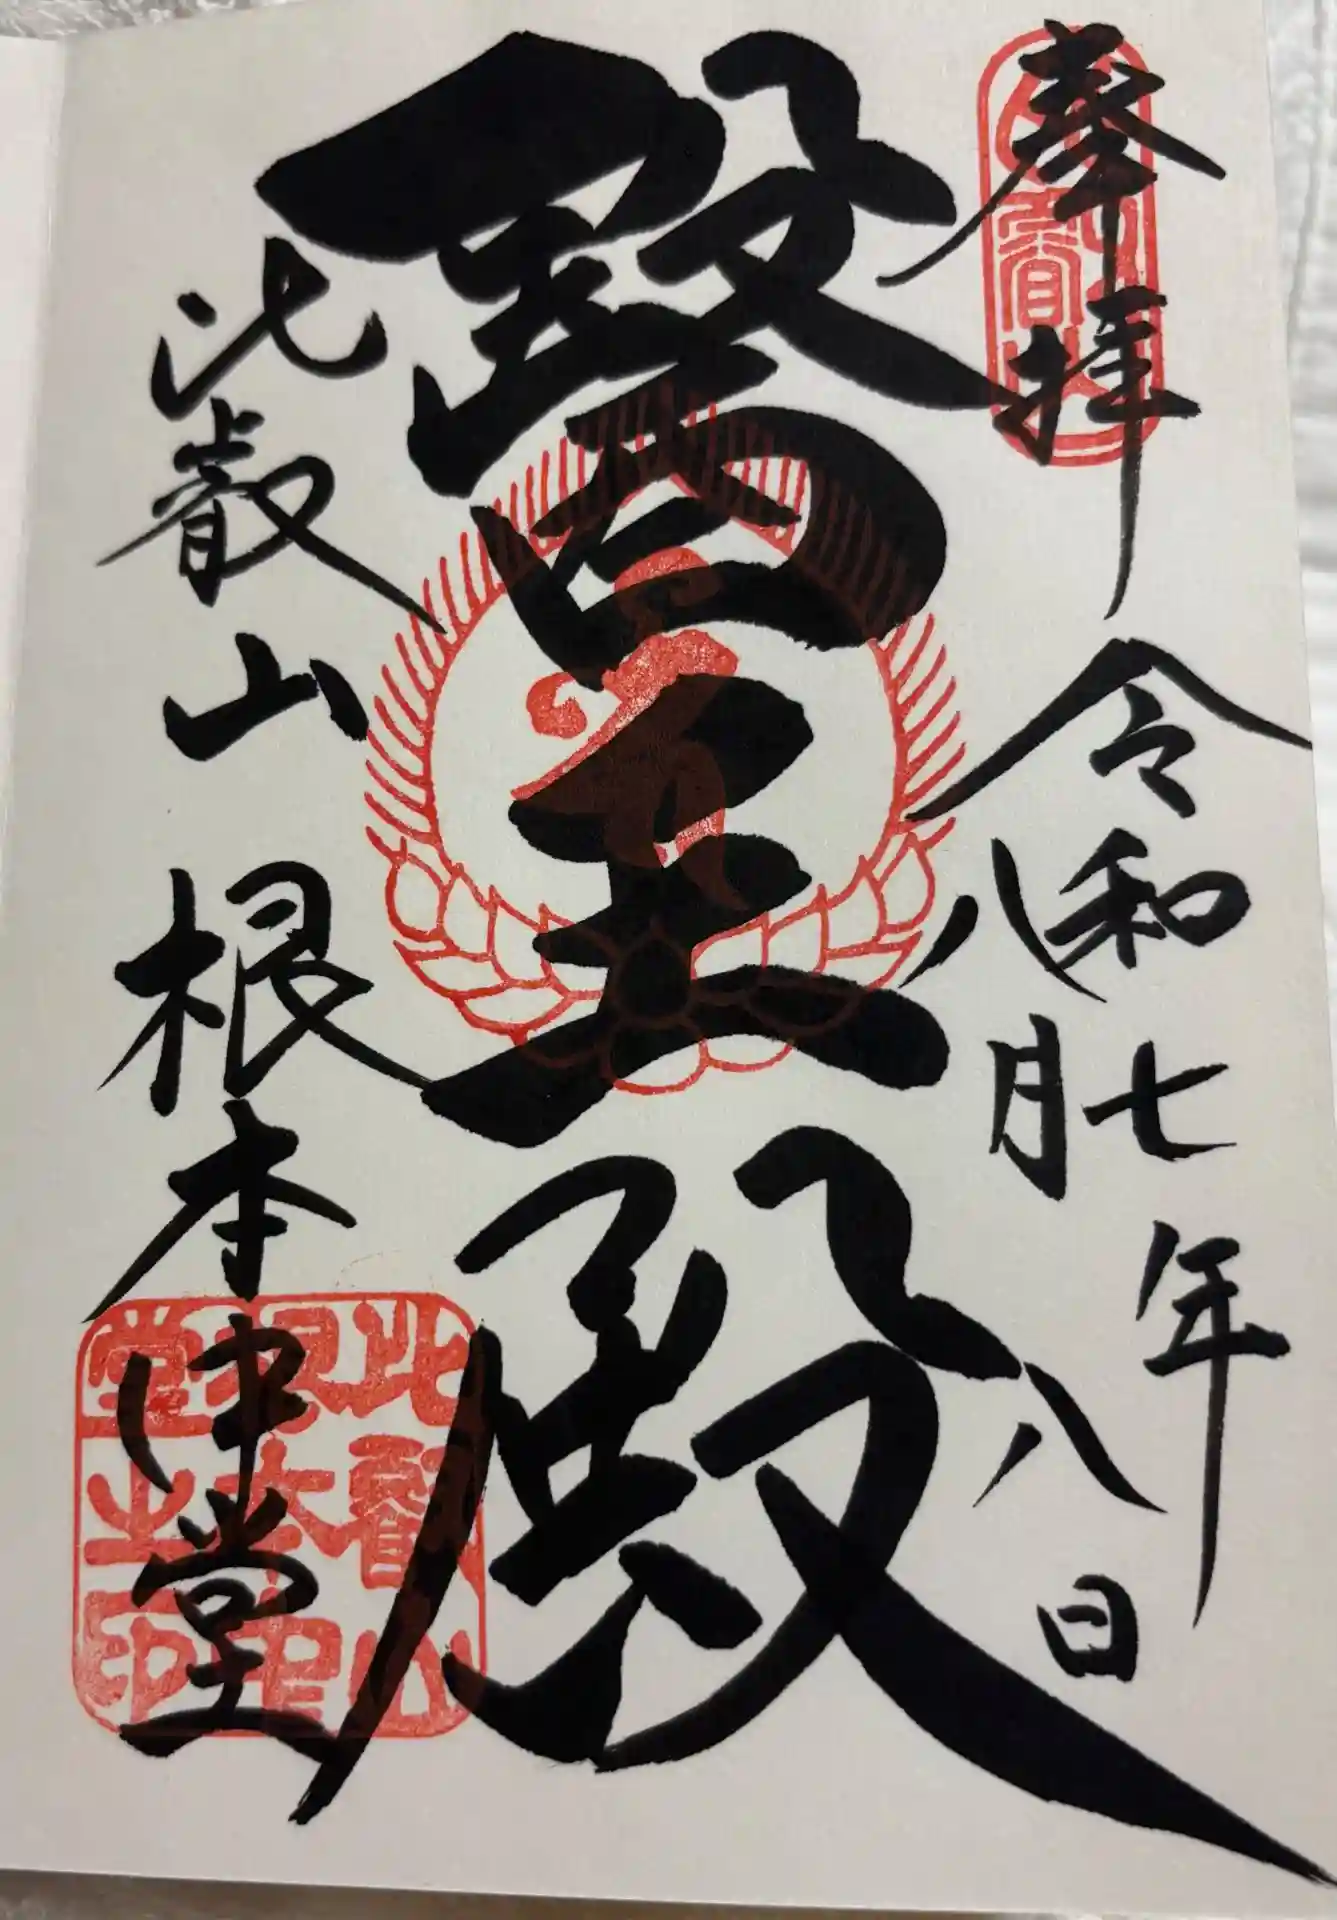 奉拝
令和七年
八月八日
醫王殿
比叡山
根本中堂
比叡山
根本中
堂之印